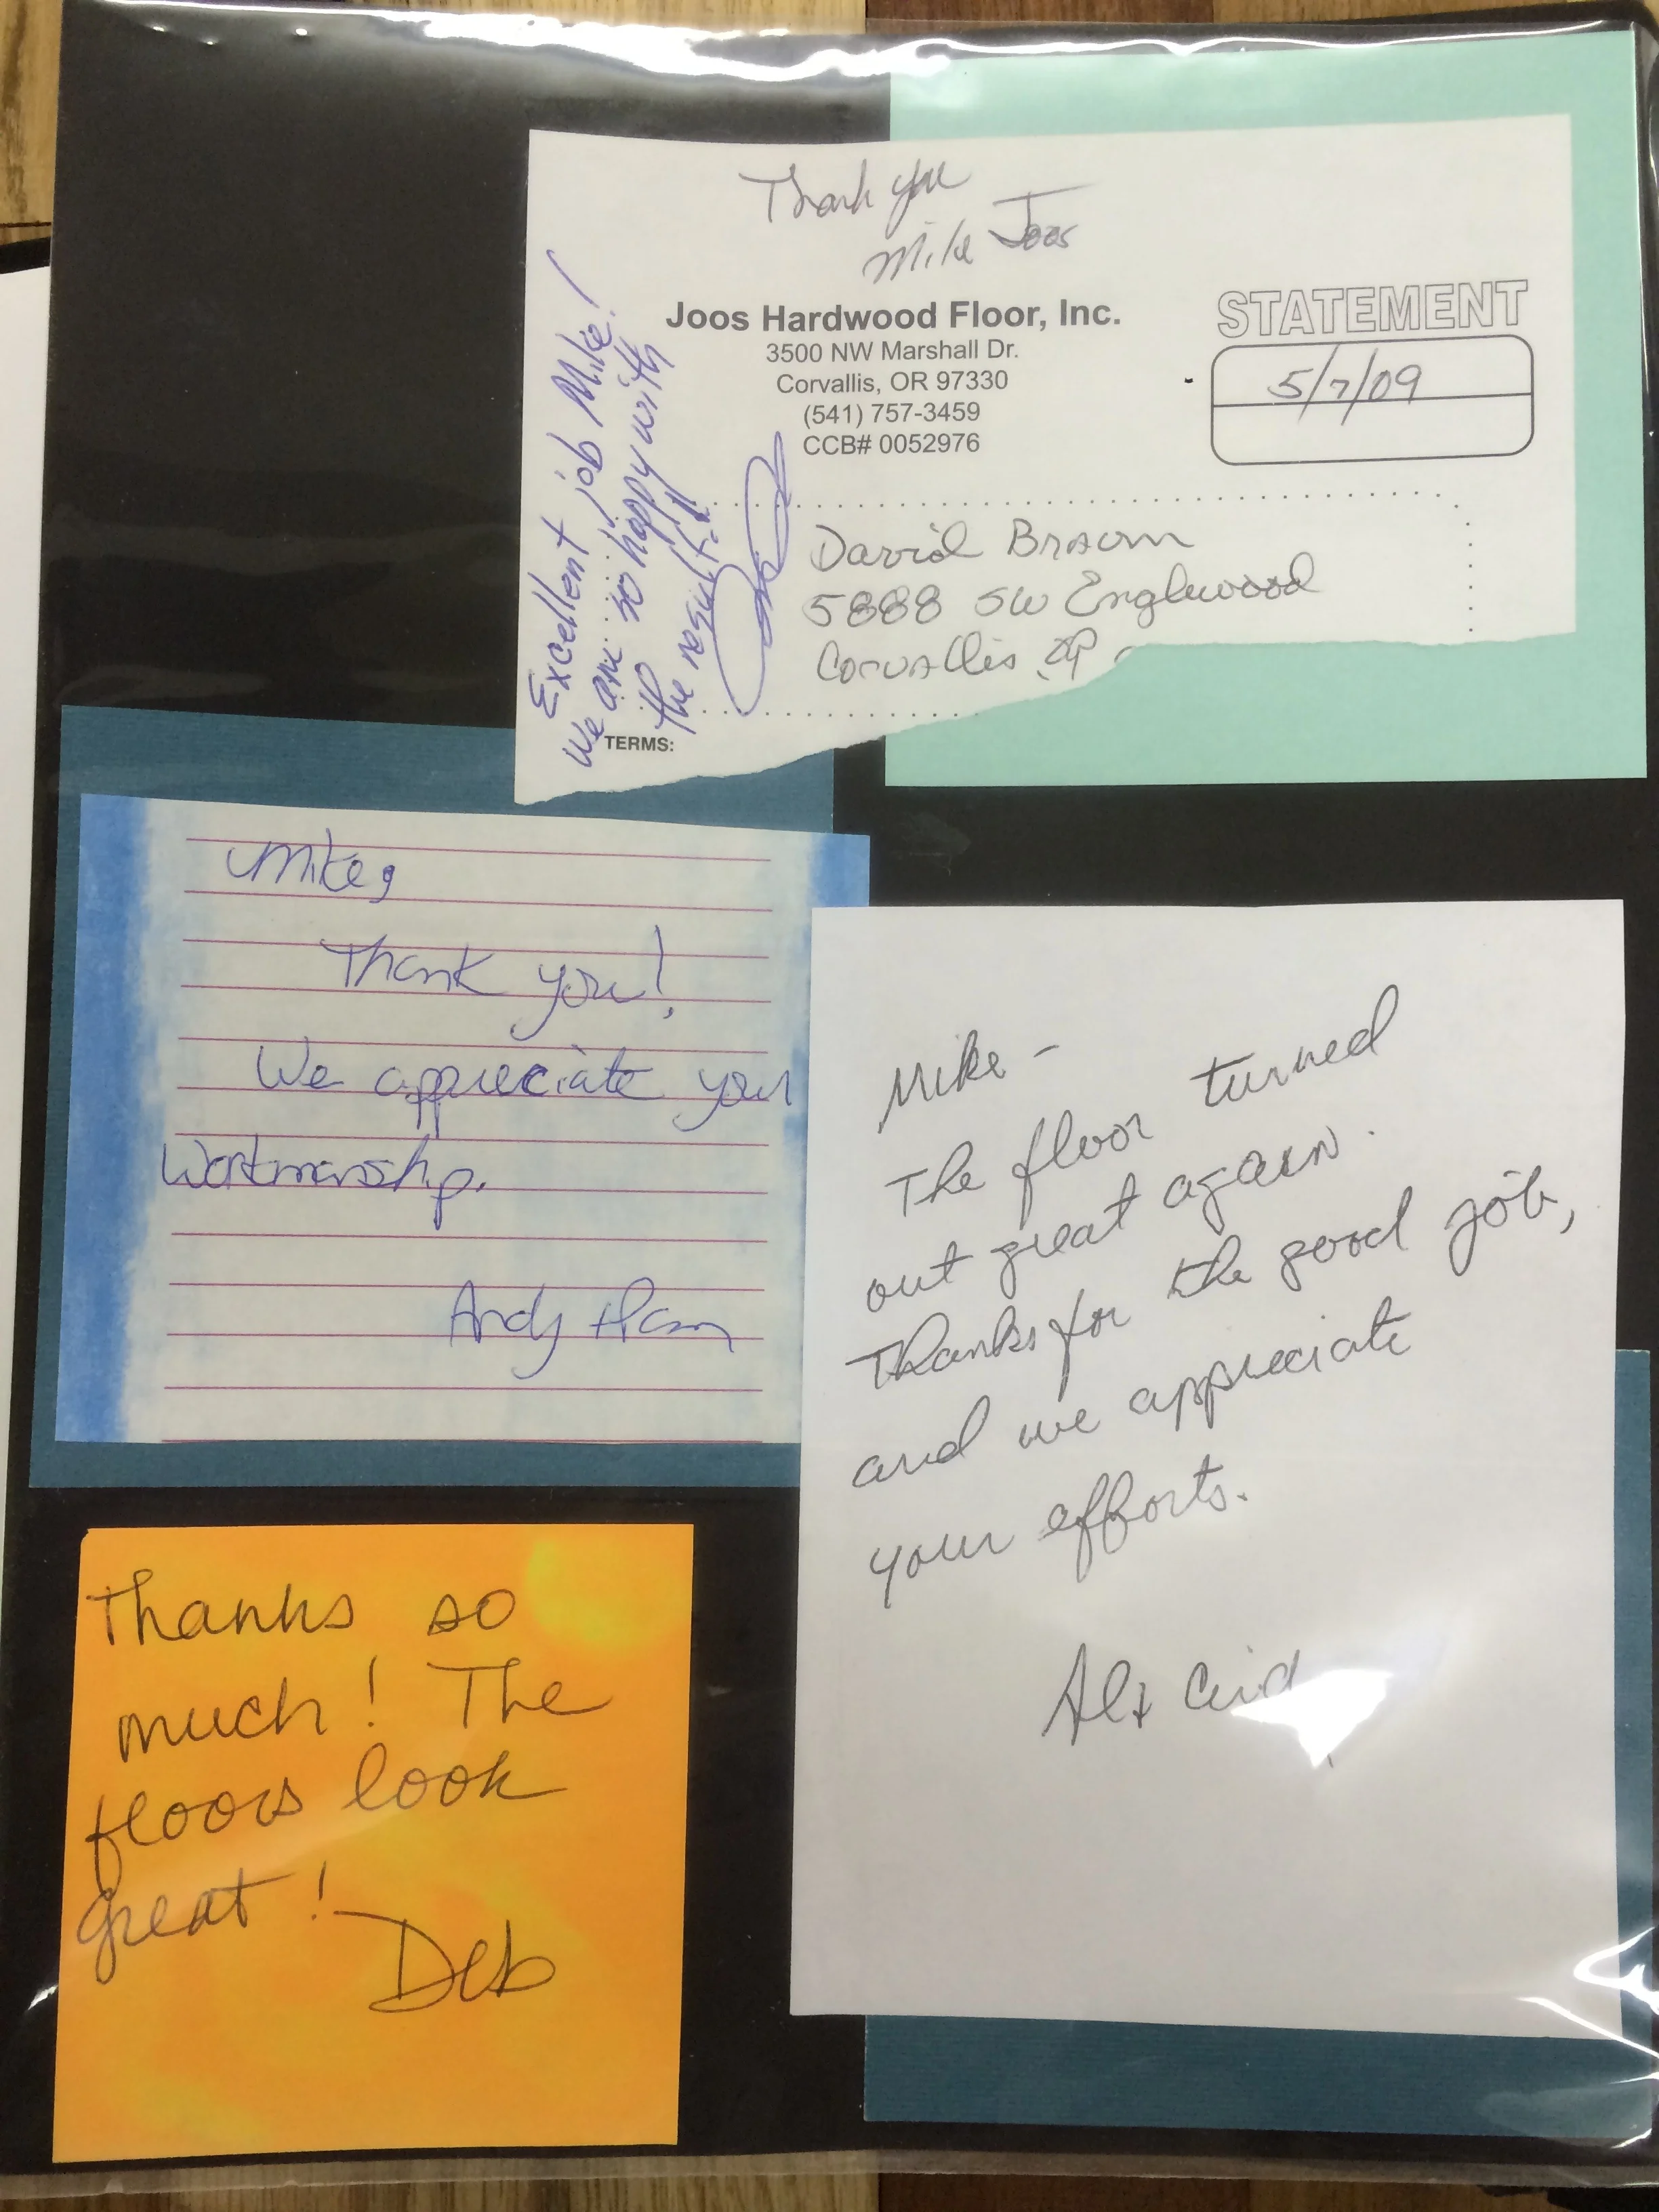 Thank you
Mike Joos
Joos Hardwood Floor, Inc.
3500 NW Marshall Dr.
Corvallis, OR 97330
(541) 757-3459
CCB# 0052976
STATEMENT
5/7/09
Excellent job Mike!
We are so happy with
the results!!
David
5888 SW Englewood
Corvallis
TERMS:
Mike,
Thank you!
We appreciate your
Workmanship.
Andy
Mike -
The floor turned
out great again.
Thanks for the good job,
and we appreciate
your efforts.
Thanks so
much! The
floors look
great!
Deb